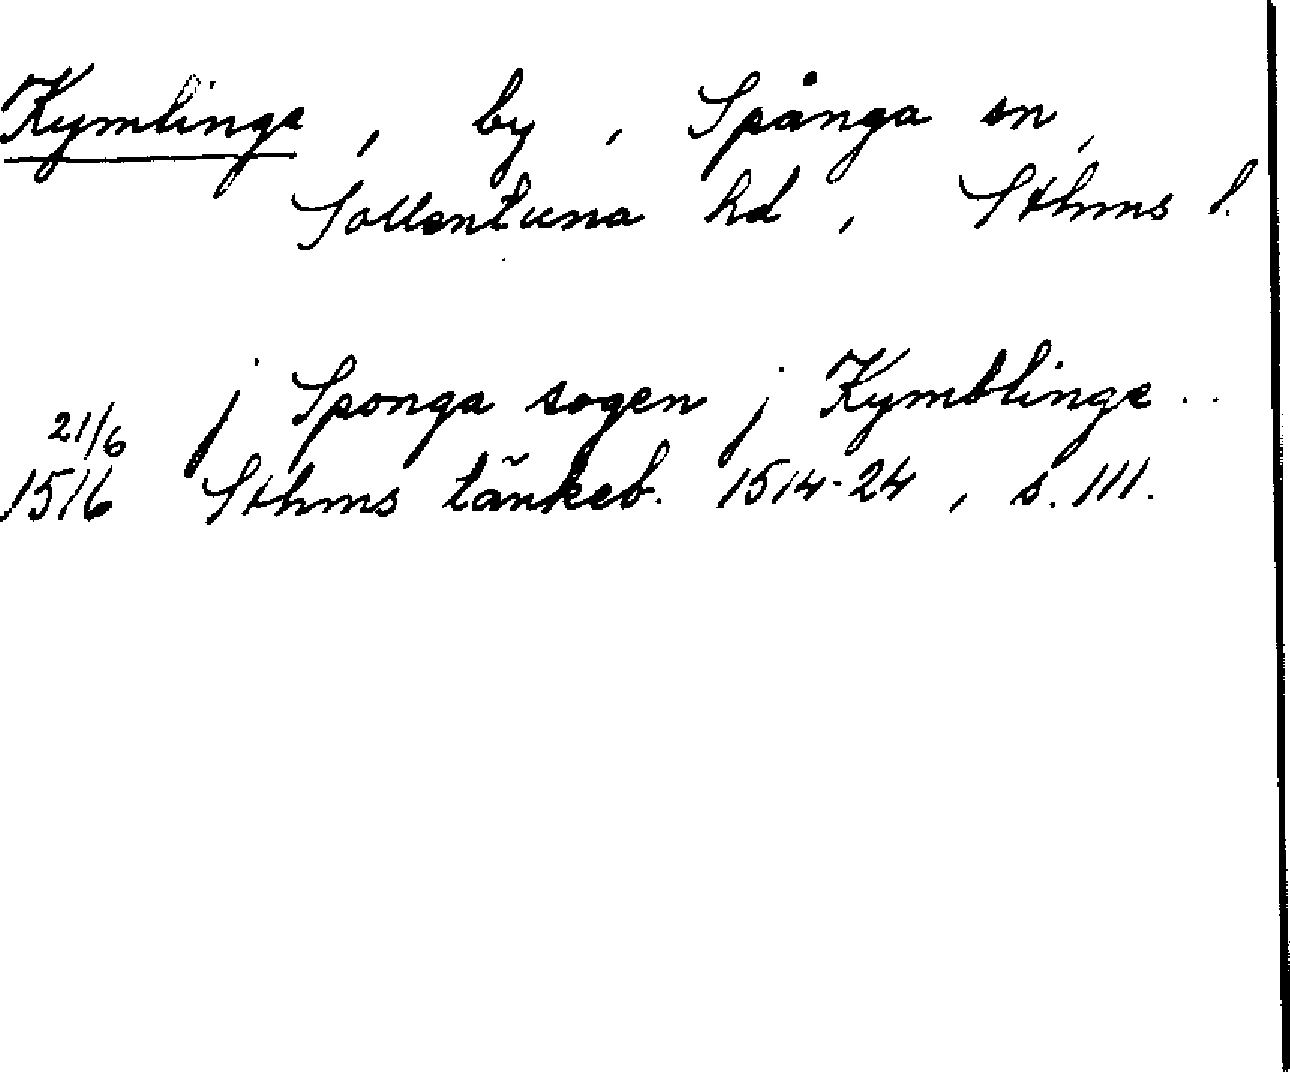 Kymlinge, by, Spånga sn,
Sollentuna hd, Sthms l.
j Sponga sogen j Kymblinge..
21/6
1516 Sthms tänkeb. 1514-24, s. 111.